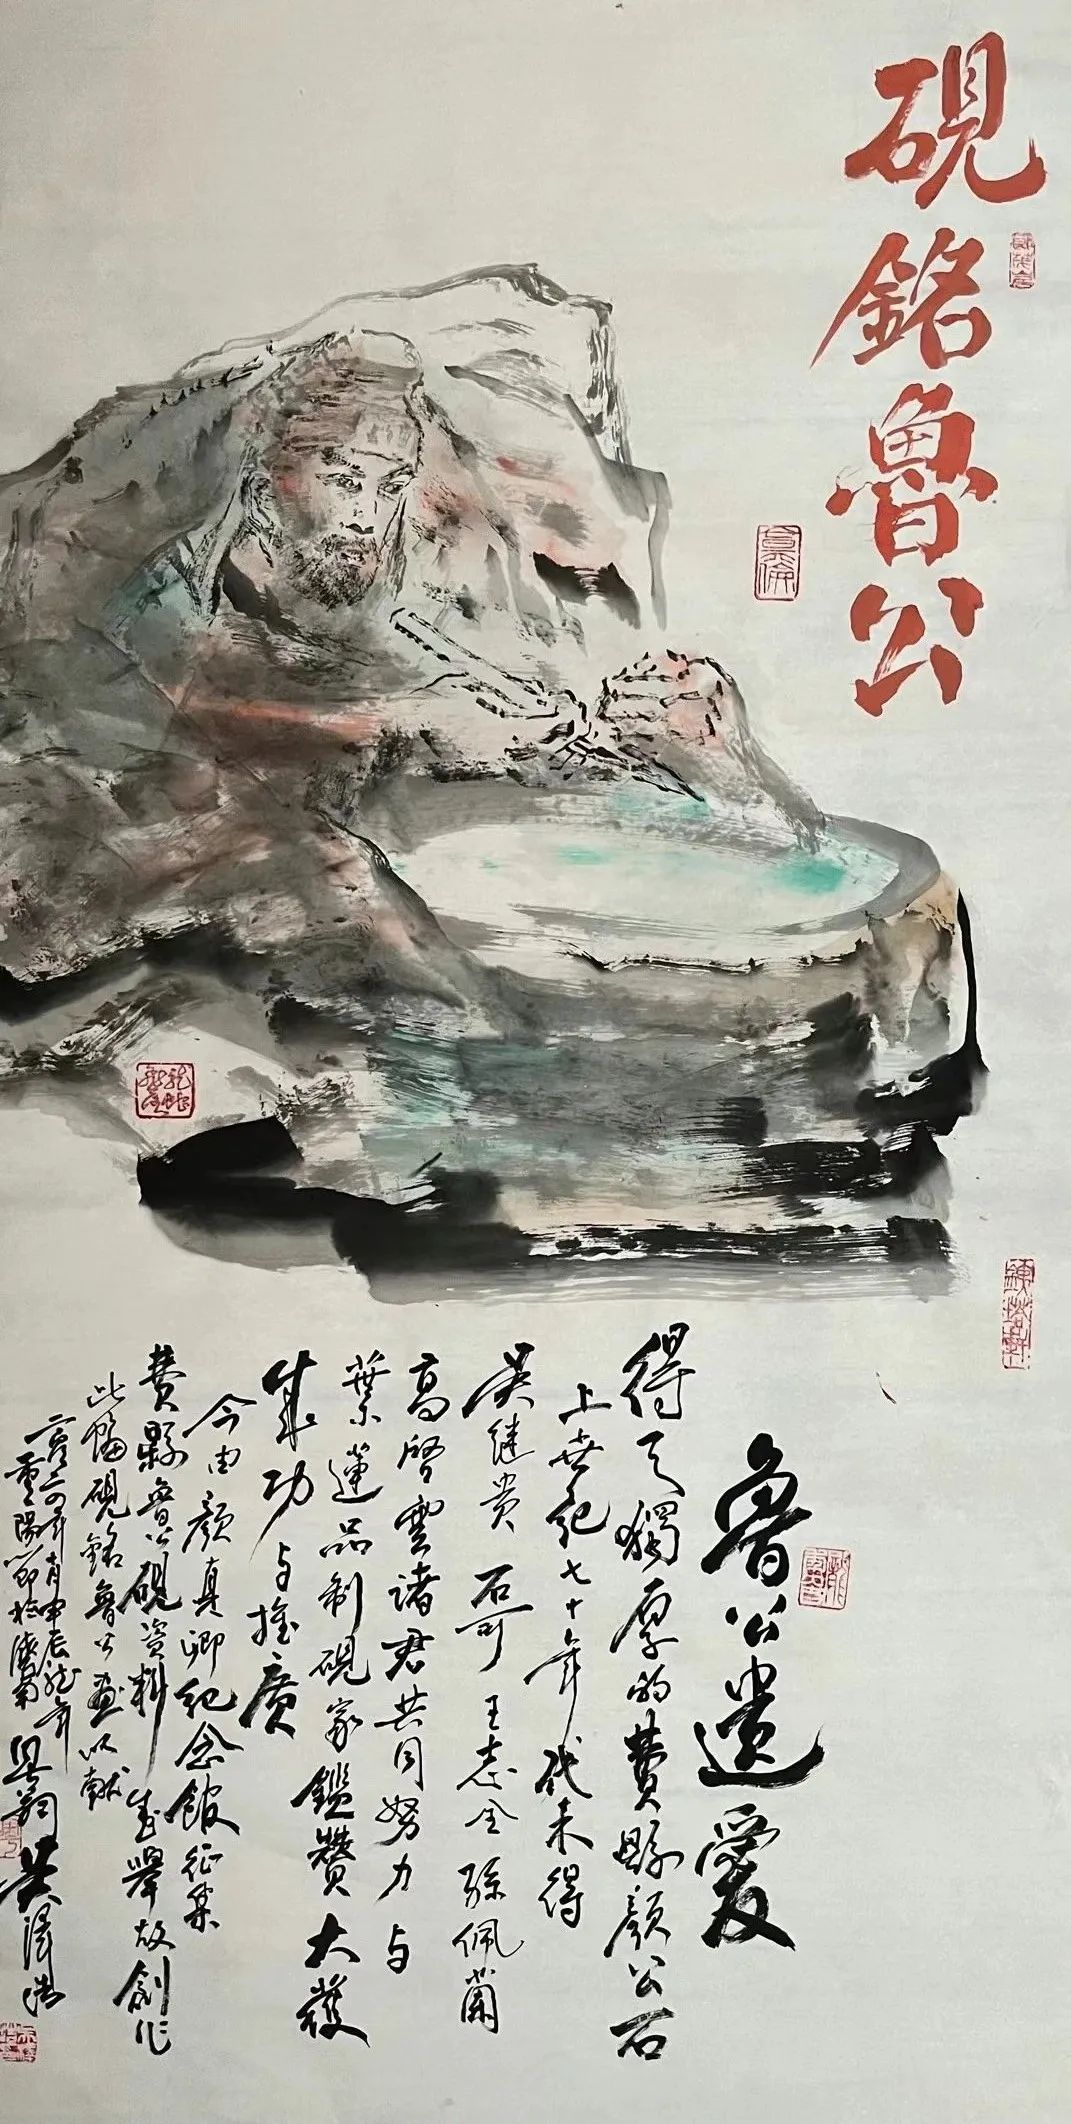 硯銘魯公
魯公遺愛
得天獨厚的費縣顏公石
上世紀七十年代末得
吴继贵 石可 王志全 孫佩蘭
高啓雲諸君共同努力与
葉蓮品制硯家鑑贊大獲
成功与推廣
今由顏真卿纪念館征集
費縣魯公硯资料 盛舉故創作
此幅硯銘魯公畫以献
二零二四年 甲辰龙年
重陽節於濟南 吴澤浩